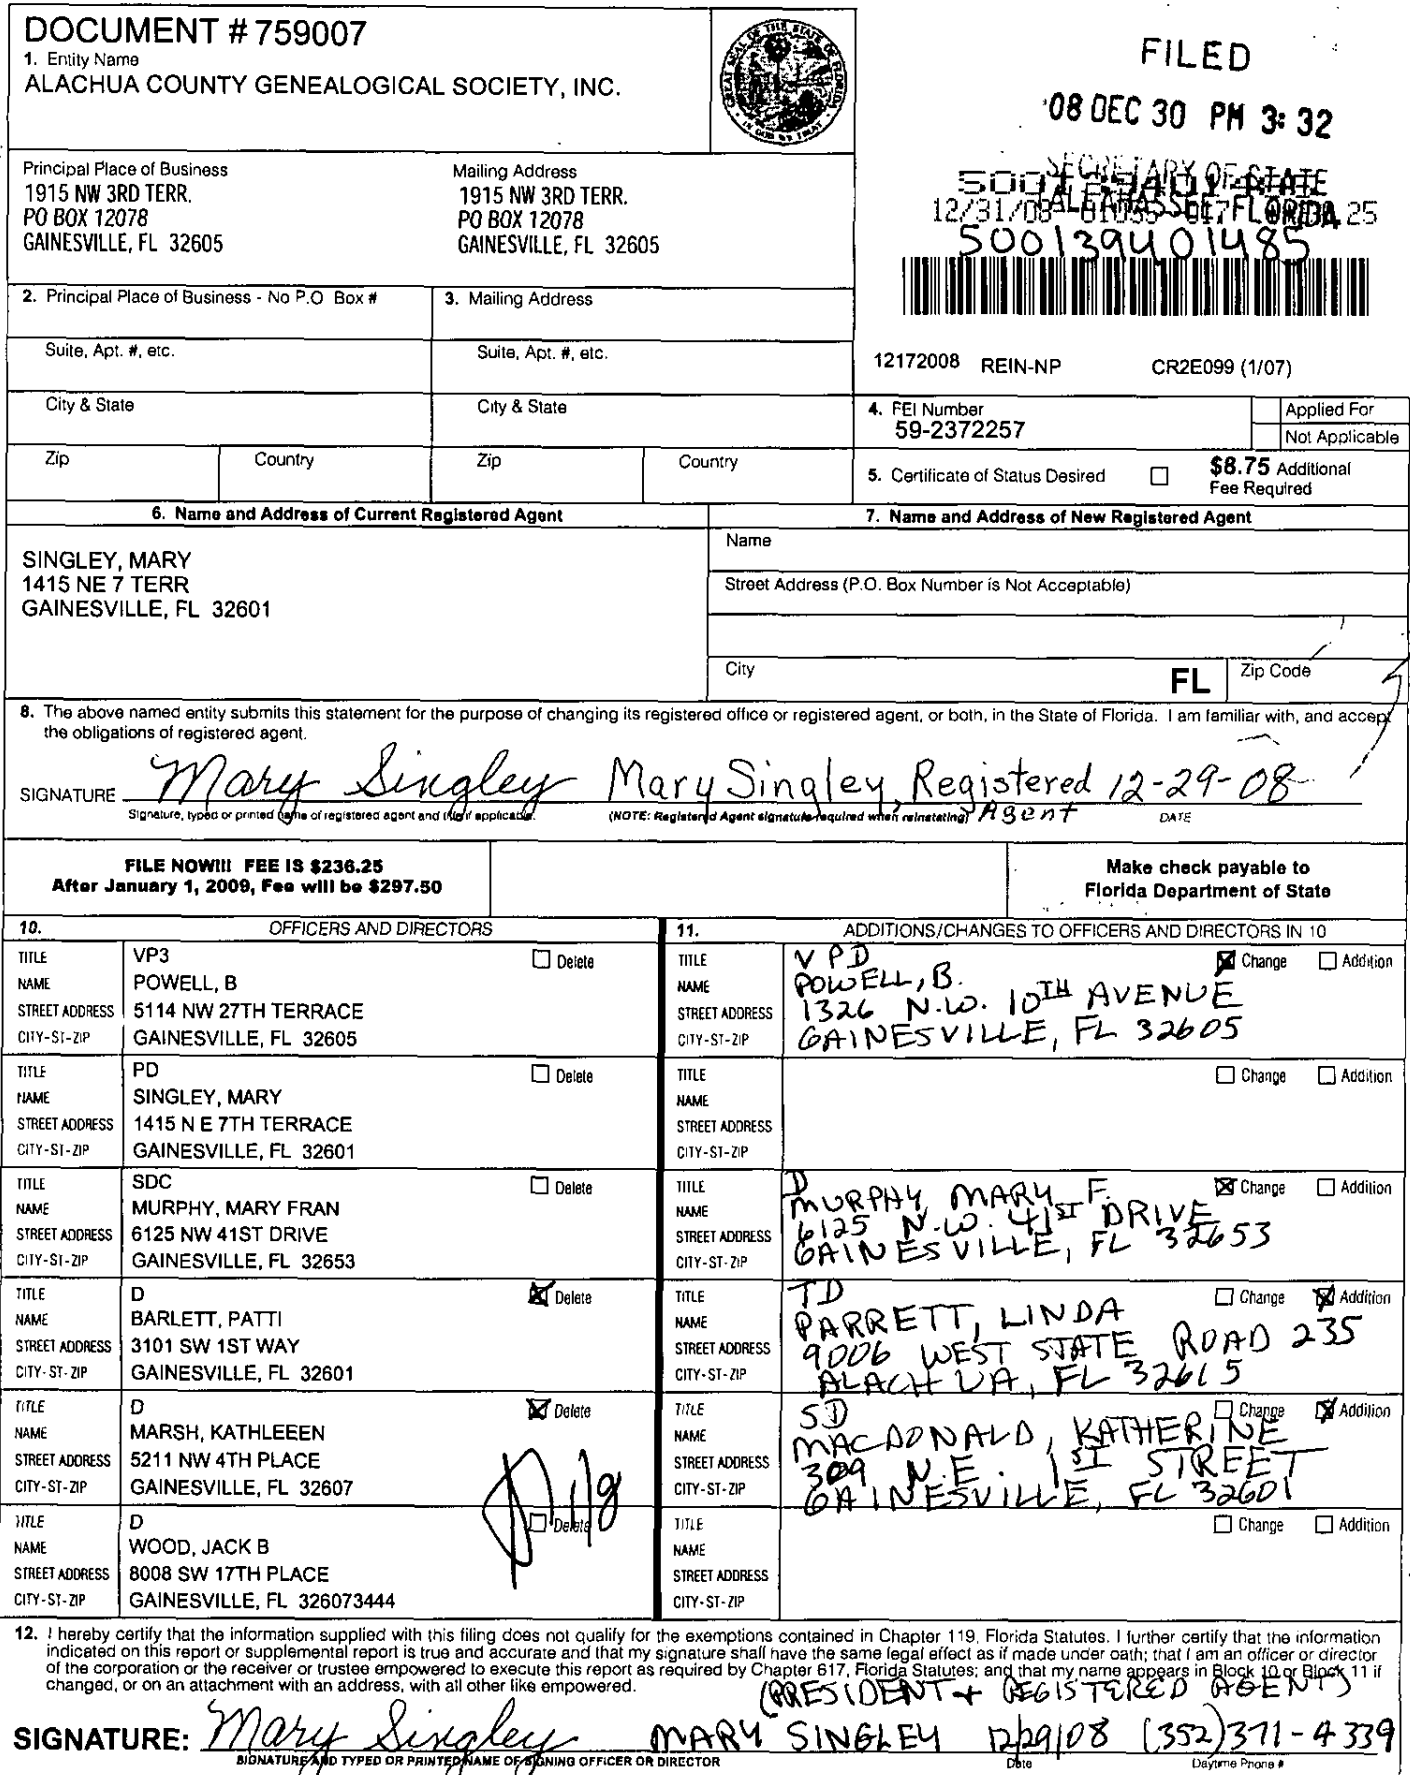 DOCUMENT # 759007
1. Entity Name
ALACHUA COUNTY GENEALOGICAL SOCIETY, INC.
GREAT SEAL OF THE STATE OF FLORIDA
IN GOD WE TRUST
FILED
'08 DEC 30 PM 3:32
SECRETARY OF STATE
TALLAHASSEE, FLORIDA
12/31/08
25
500139401485
Principal Place of Business
1915 NW 3RD TERR.
PO BOX 12078
GAINESVILLE, FL 32605
Mailing Address
1915 NW 3RD TERR.
PO BOX 12078
GAINESVILLE, FL 32605
2. Principal Place of Business - No P.O Box #
3. Mailing Address
Suite, Apt. #, etc.
Suite, Apt. #, etc.
12172008 REIN-NP CR2E099 (1/07)
City & State
City & State
4. FEI Number
59-2372257
Applied For
Not Applicable
Zip Country Zip Country
5. Certificate of Status Desired
$8.75 Additional
Fee Required
6. Name and Address of Current Registered Agent
SINGLEY, MARY
1415 NE 7 TERR
GAINESVILLE, FL 32601
7. Name and Address of New Registered Agent
Name
Street Address (P.O. Box Number is Not Acceptable)
City FL Zip Code
8. The above named entity submits this statement for the purpose of changing its registered office or registered agent, or both, in the State of Florida. I am familiar with, and accept
the obligations of registered agent.
SIGNATURE Mary Singley Mary Singley, Registered Agent 12-29-08
Signature, typed or printed name of registered agent and title if applicable. (NOTE: Registered Agent signature required when reinstating) DATE
FILE NOW!!! FEE IS $236.25
After January 1, 2009, Fee will be $297.50
Make check payable to
Florida Department of State
10. OFFICERS AND DIRECTORS
TITLE VP3 Delete
NAME POWELL, B
STREET ADDRESS 5114 NW 27TH TERRACE
CITY-ST-ZIP GAINESVILLE, FL 32605
TITLE PD Delete
NAME SINGLEY, MARY
STREET ADDRESS 1415 N E 7TH TERRACE
CITY-ST-ZIP GAINESVILLE, FL 32601
TITLE SDC Delete
NAME MURPHY, MARY FRAN
STREET ADDRESS 6125 NW 41ST DRIVE
CITY-ST-ZIP GAINESVILLE, FL 32653
TITLE D Delete
NAME BARLETT, PATTI
STREET ADDRESS 3101 SW 1ST WAY
CITY-ST-ZIP GAINESVILLE, FL 32601
TITLE D Delete
NAME MARSH, KATHLEEEN
STREET ADDRESS 5211 NW 4TH PLACE
CITY-ST-ZIP GAINESVILLE, FL 32607
TITLE D Delete
NAME WOOD, JACK B
STREET ADDRESS 8008 SW 17TH PLACE
CITY-ST-ZIP GAINESVILLE, FL 326073444
11. ADDITIONS/CHANGES TO OFFICERS AND DIRECTORS IN 10
TITLE VPD Change Addition
NAME POWELL, B.
STREET ADDRESS 1326 N.W. 10TH AVENUE
CITY-ST-ZIP GAINESVILLE, FL 32605
TITLE Change Addition
NAME
STREET ADDRESS
CITY-ST-ZIP
TITLE D Change Addition
NAME MURPHY, MARY F.
STREET ADDRESS 6125 N.W. 41ST DRIVE
CITY-ST-ZIP GAINESVILLE, FL 32653
TITLE TD Change Addition
NAME PARRETT, LINDA
STREET ADDRESS 9006 WEST STATE ROAD 235
CITY-ST-ZIP ALACHUA, FL 32615
TITLE SD Change Addition
NAME MACDONALD, KATHERINE
STREET ADDRESS 309 N.E. 1ST STREET
CITY-ST-ZIP GAINESVILLE, FL 32601
TITLE Change Addition
NAME
STREET ADDRESS
CITY-ST-ZIP
12. I hereby certify that the information supplied with this filing does not qualify for the exemptions contained in Chapter 119, Florida Statutes. I further certify that the information
indicated on this report or supplemental report is true and accurate and that my signature shall have the same legal effect as if made under oath; that I am an officer or director
of the corporation or the receiver or trustee empowered to execute this report as required by Chapter 617, Florida Statutes; and that my name appears in Block 10 or Block 11 if
changed, or on an attachment with an address, with all other like empowered.
(PRESIDENT + REGISTERED AGENT)
SIGNATURE: Mary Singley MARY SINGLEY 12/29/08 (352)371-4339
SIGNATURE AND TYPED OR PRINTED NAME OF SIGNING OFFICER OR DIRECTOR Date Daytime Phone #